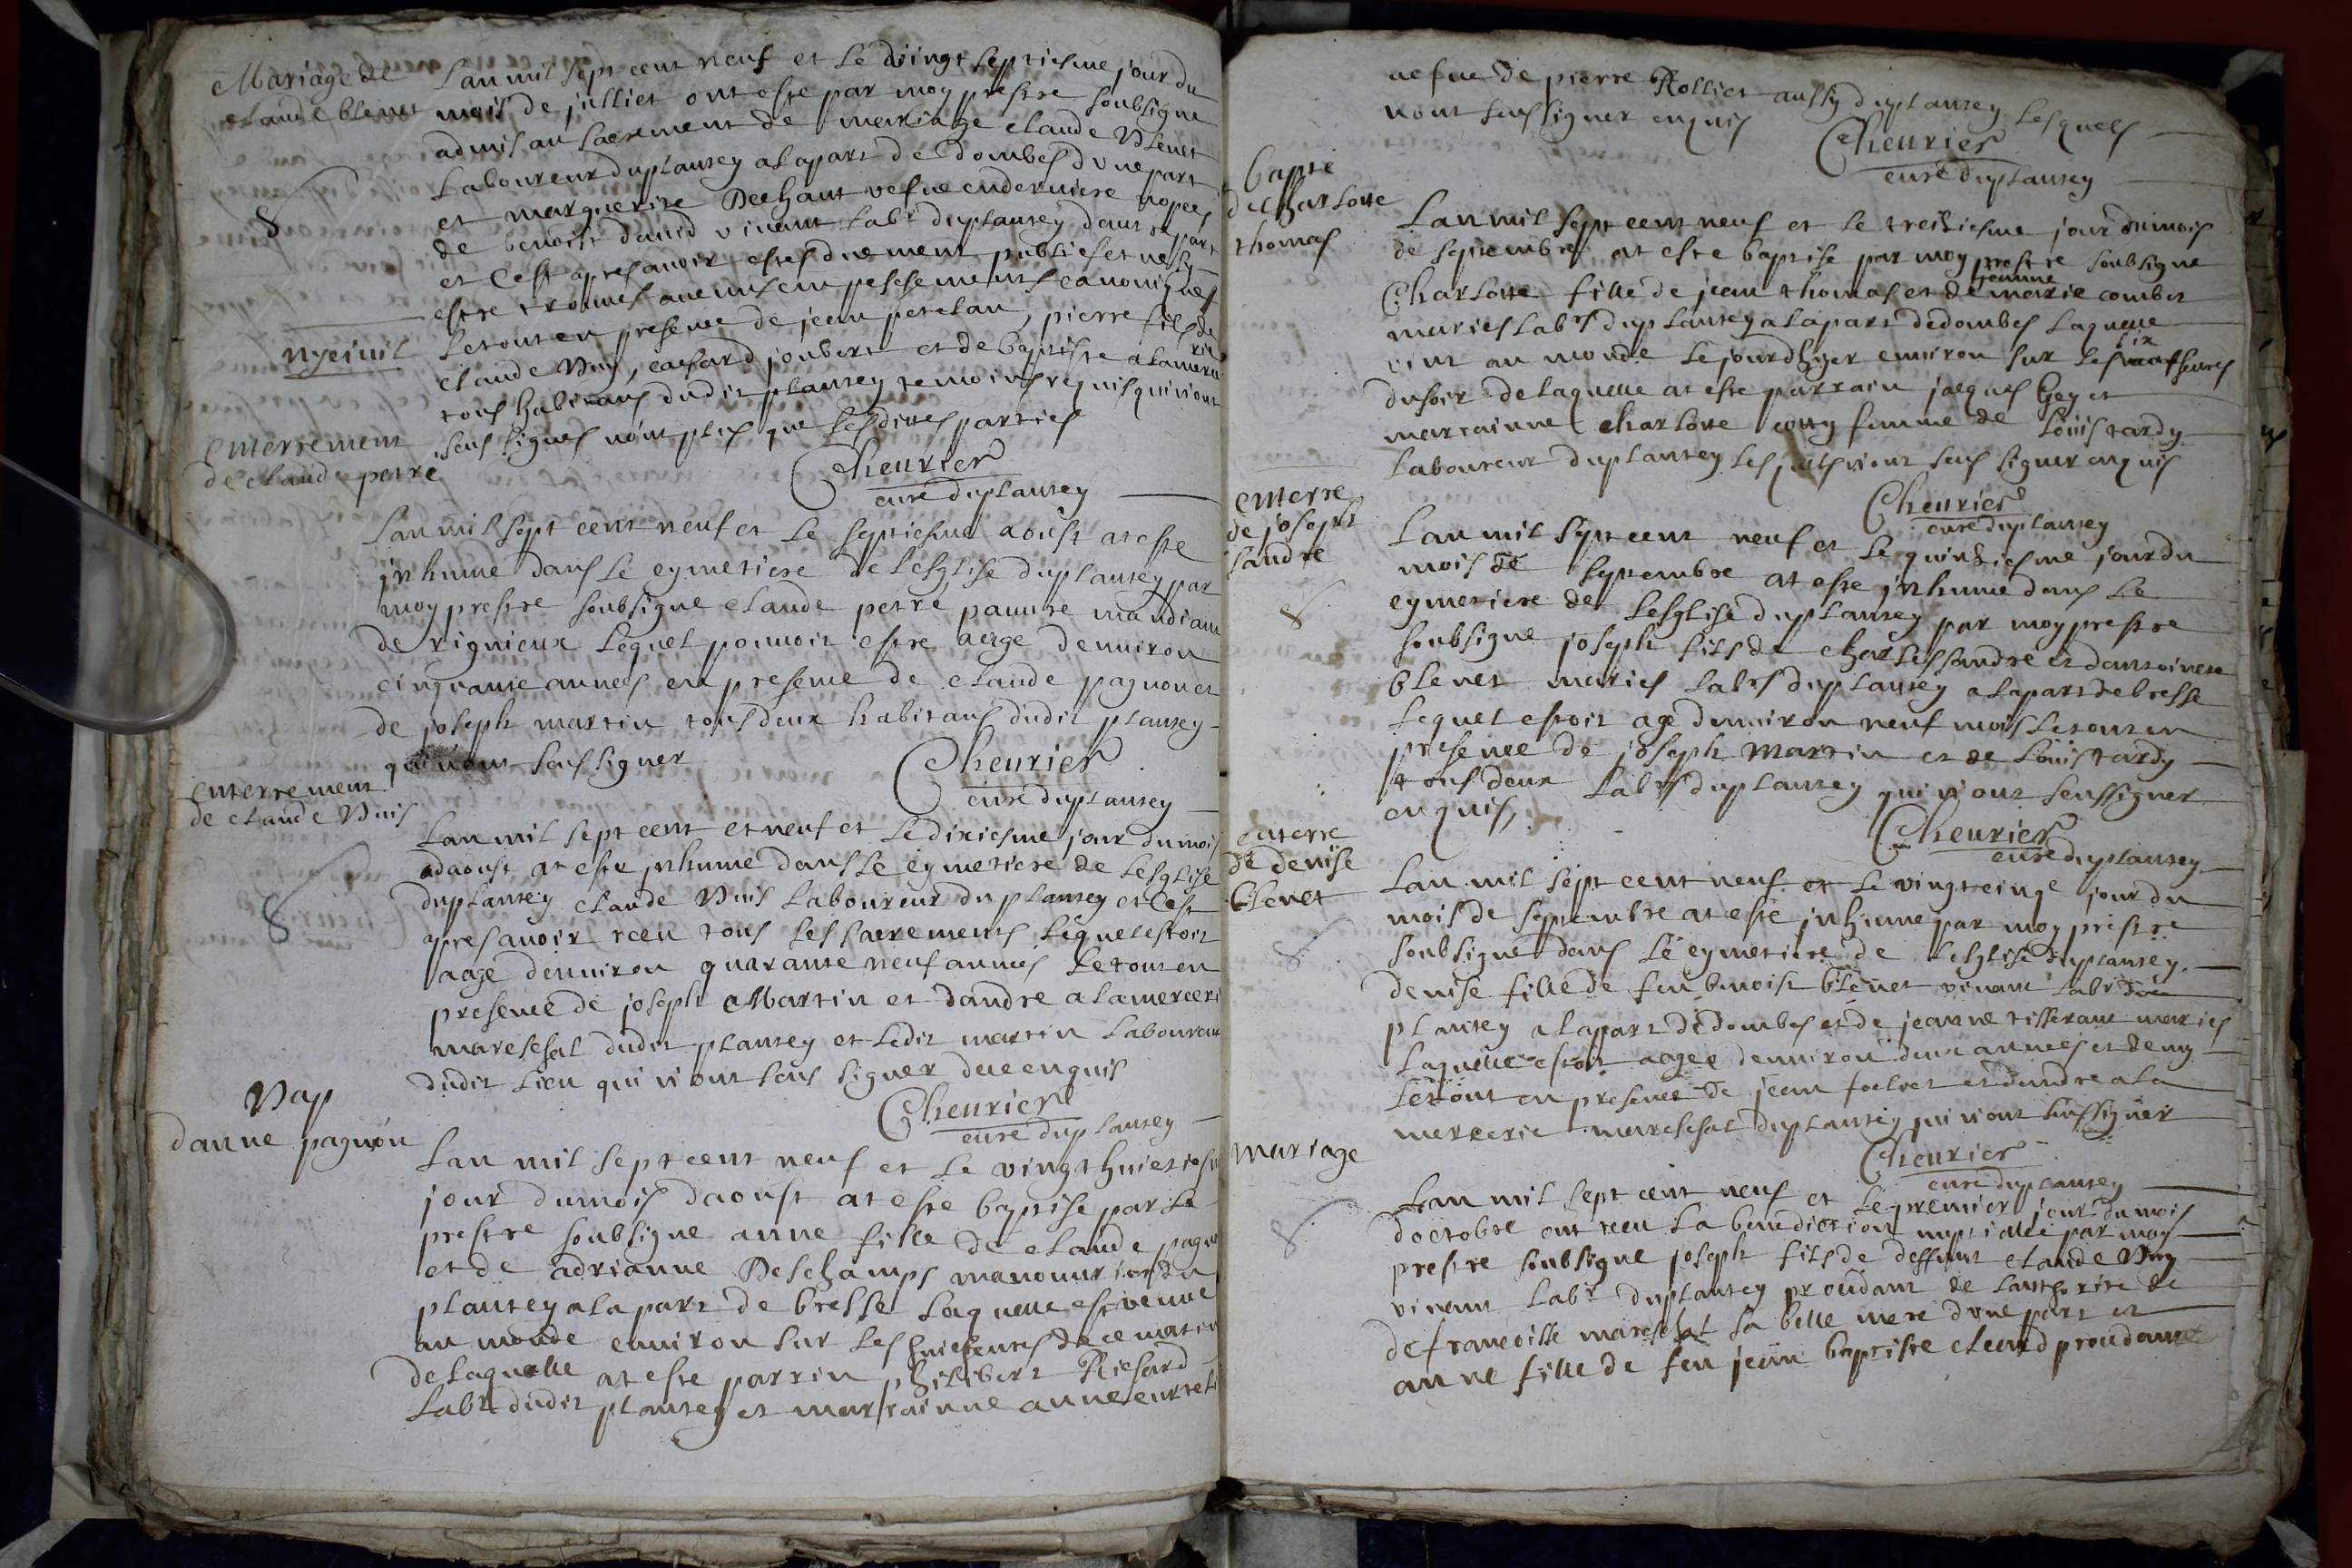 Mariage de
claude blenet
Lan mil sept cent neuf et le vingt septiesme jour du
mois de julliet ont este par moy prestre soubsigne
admis au sacrement de mariage claude Blenet
Laboureur duplantey alapart de dombes dune part
et marguerite Dechant vefve enderniere nopces
de benoist david vivant labr duplantey dautre part
et cest apres avoir estes duement publies et ne sy
estre trouves aucuns empeschements canoniques
letout en presence de jean perelan, pierre fils de
claude Nuy, gaspard joubert et de baptiste alamercerie
tous habitans dudit plantey temoins requis qui nont
seus signer nont plus que lesdites parties
Cheurier
curé duplantey
enterrement
de claude perré
Lan mil sept cent neuf et le septiesme aoust at este
jnhume dans le cymetiere de lesglise duplantey par
moy prestre soubsigne claude perré pauvre mandiant
de rignieux lequel pouvoit estre aage denviron
cinquante annees en presence de claude pagnon et
de joseph martin tous deux habitans dudit plantey
qui nont seus signer
Cheurier
curé duplantey
enterrement
de claude Nuis
Lan mil sept cent et neuf et le dixiesme jour du mois
daoust at este jnhume dans le cymetiere de lesglise
duplantey claude Nuis laboureur duplantey et cest
apres avoir receu tous les sacrements lequel estoit
aage denviron quarante neuf annees letout en
presence de joseph Martin et dandre alamercerie
mareschal dudit plantey et ledit martin laboureur
dudit lieu qui nont seus signer de ce enquis
Cheurier
curé duplantey
Bap
danne pagnon
Lan mil sept cent neuf et le vingt huictiesme
jour dumois daoust at este baptise par le
prestre soubsigne anne fille de claude pagnon
et de adrianne Deschamps manouvriers du
plantey alapart de bresse laquelle est venue
au monde environ sur les huict heures de ce matin
delaquelle at este parrin philibert Richard
Labr dudit plantey et marrainne anne
vefve de pierre Rolliet aussy duplantey lesquels
nont seus signer enquis
Cheurier
curé duplantey
bapte
de charlotte
thomas
Lan mil sept cent neuf et le treiziesme jour dumois
de septembre at este baptise par moy prestre soubsigne
Charlotte fille de jean thomas et de jeanne marie combet
maries labrs duplantey alapart dedombes laquelle
vint au monde le jourdhyer environ sur les six heures
dusoir delaquelle at este parrain jacques Gey et
marrainne charlotte cotty femme de Louis tardy
laboureur duplantey lesquels nont seus signer enquis
Cheurier
curé duplantey
enterre
de joseph
sandre
Lan mil sept cent neuf et le quinziesme jour du
mois de septembre at este jnhume dans le
cymetiere de lesglise duplantey par moy prestre
soubsigne joseph fils de charles sandre et dantoinette
blenet maries labrs duplantey alapart de bresse
lequel estoit age denviron neuf mois letout en
presence de joseph martin et de Louis tardy
tous deux labrs duplantey qui nont seus signer
enquis,
Cheurier
curé duplantey
enterre
de denise
blenet
Lan mil sept cent neuf et le vingt cinqe jour du
mois de septembre at este jnhume par moy prestre
soubsigne dans le cymetiere de lesglise duplantey
denise fille de feu benoist blenet vivant labr
plantey alapart dedombes et de jeanne tisserant maries
laquelle estoit aagee denviron deux annees et demy
letout en presence de jean et dandre ala
mercerie mareschal duplantey qui nont seus signer
Cheurier
curé duplantey
mariage
Lan mil sept cent neuf et le premier jour du mois
doctobre ont receu la benediction nuptialle par moy
prestre soubsigne joseph fils de deffunt claude Nuy
vivant labr duplantey proudant de lauthorite de
defrancoise mareschal sa belle mere dune part et
anne fille de feu jean baptiste cleard proudante